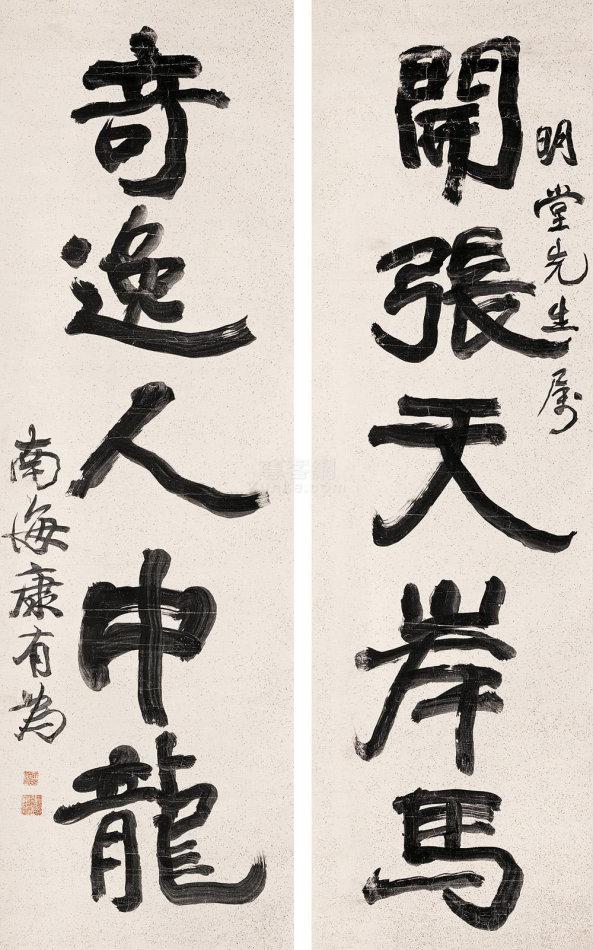 明堂先生属
開張天岸馬
奇逸人中龍
南海康有為